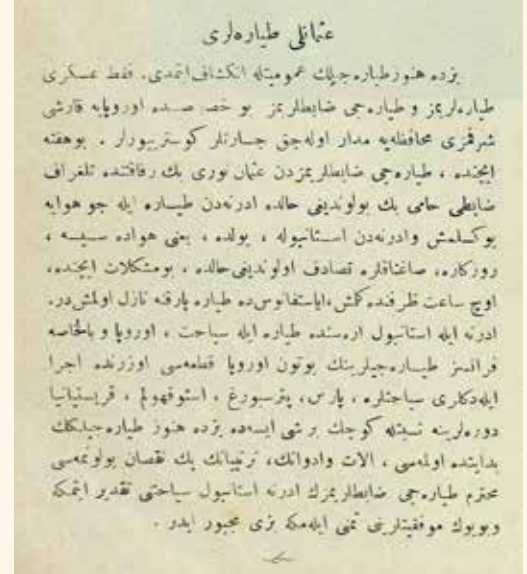 عثمانلی طیاره‌لری
بزده هنوز طیاره‌جیلك عمومیتله انکشاف ایتمدی. فقط عسکری
طیاره‌لریمز و طیاره‌جی ضابطلریمز بو خصوصده اوروپایه قارشی
شرفمزی محافظه‌یه مدار اوله‌جق جسارتلر کوستریورلر . بوهفته
ایچنده ، طیاره‌جی ضابطلریمزدن عثمان نوری بك رفاقتنده تلغراف
ضابطی حامی بك بولوندیغی حالده ادرنه‌دن طیاره ایله جو هوایه
یوکسلمش وادرنه‌دن استانبوله ، یولده ، یعنی هواده سیسه ،
روزکاره، صاغناقلره تصادف اولوندیغی حالده ، بومشکلات ایچنده،
اوچ ساعت ظرفنده کلمش، ایاستفانوس‌ده طیاره پارقنه نازل اولمش‌در.
ادرنه ایله استانبول اره‌سنده طیاره ایله سیاحت ، اوروپا و بالخاصه
فرانسز طیاره‌جیلرینك بوتون اوروپا قطعه‌سی اوزرنده اجرا
ایله‌دکلری سیاحتلره ، پارس، پترسبورغ ، استوقهولم ، قریستیانیا
دوره‌لرینه نسبتله کوچك بر شی ایسه‌ده بزده هنوز طیاره‌جیلکك
بدایتنده اولمه‌سی ، الات وادواتك، ترتیباتك پك نقصان بولونمه‌سی
محترم طیاره‌جی ضابطلریمزك ادرنه استانبول سیاحتنی تقدیر ایتمکه
وبویوك موفقیتلرینی تمنی ایله‌مکه بزی مجبور ایدر .